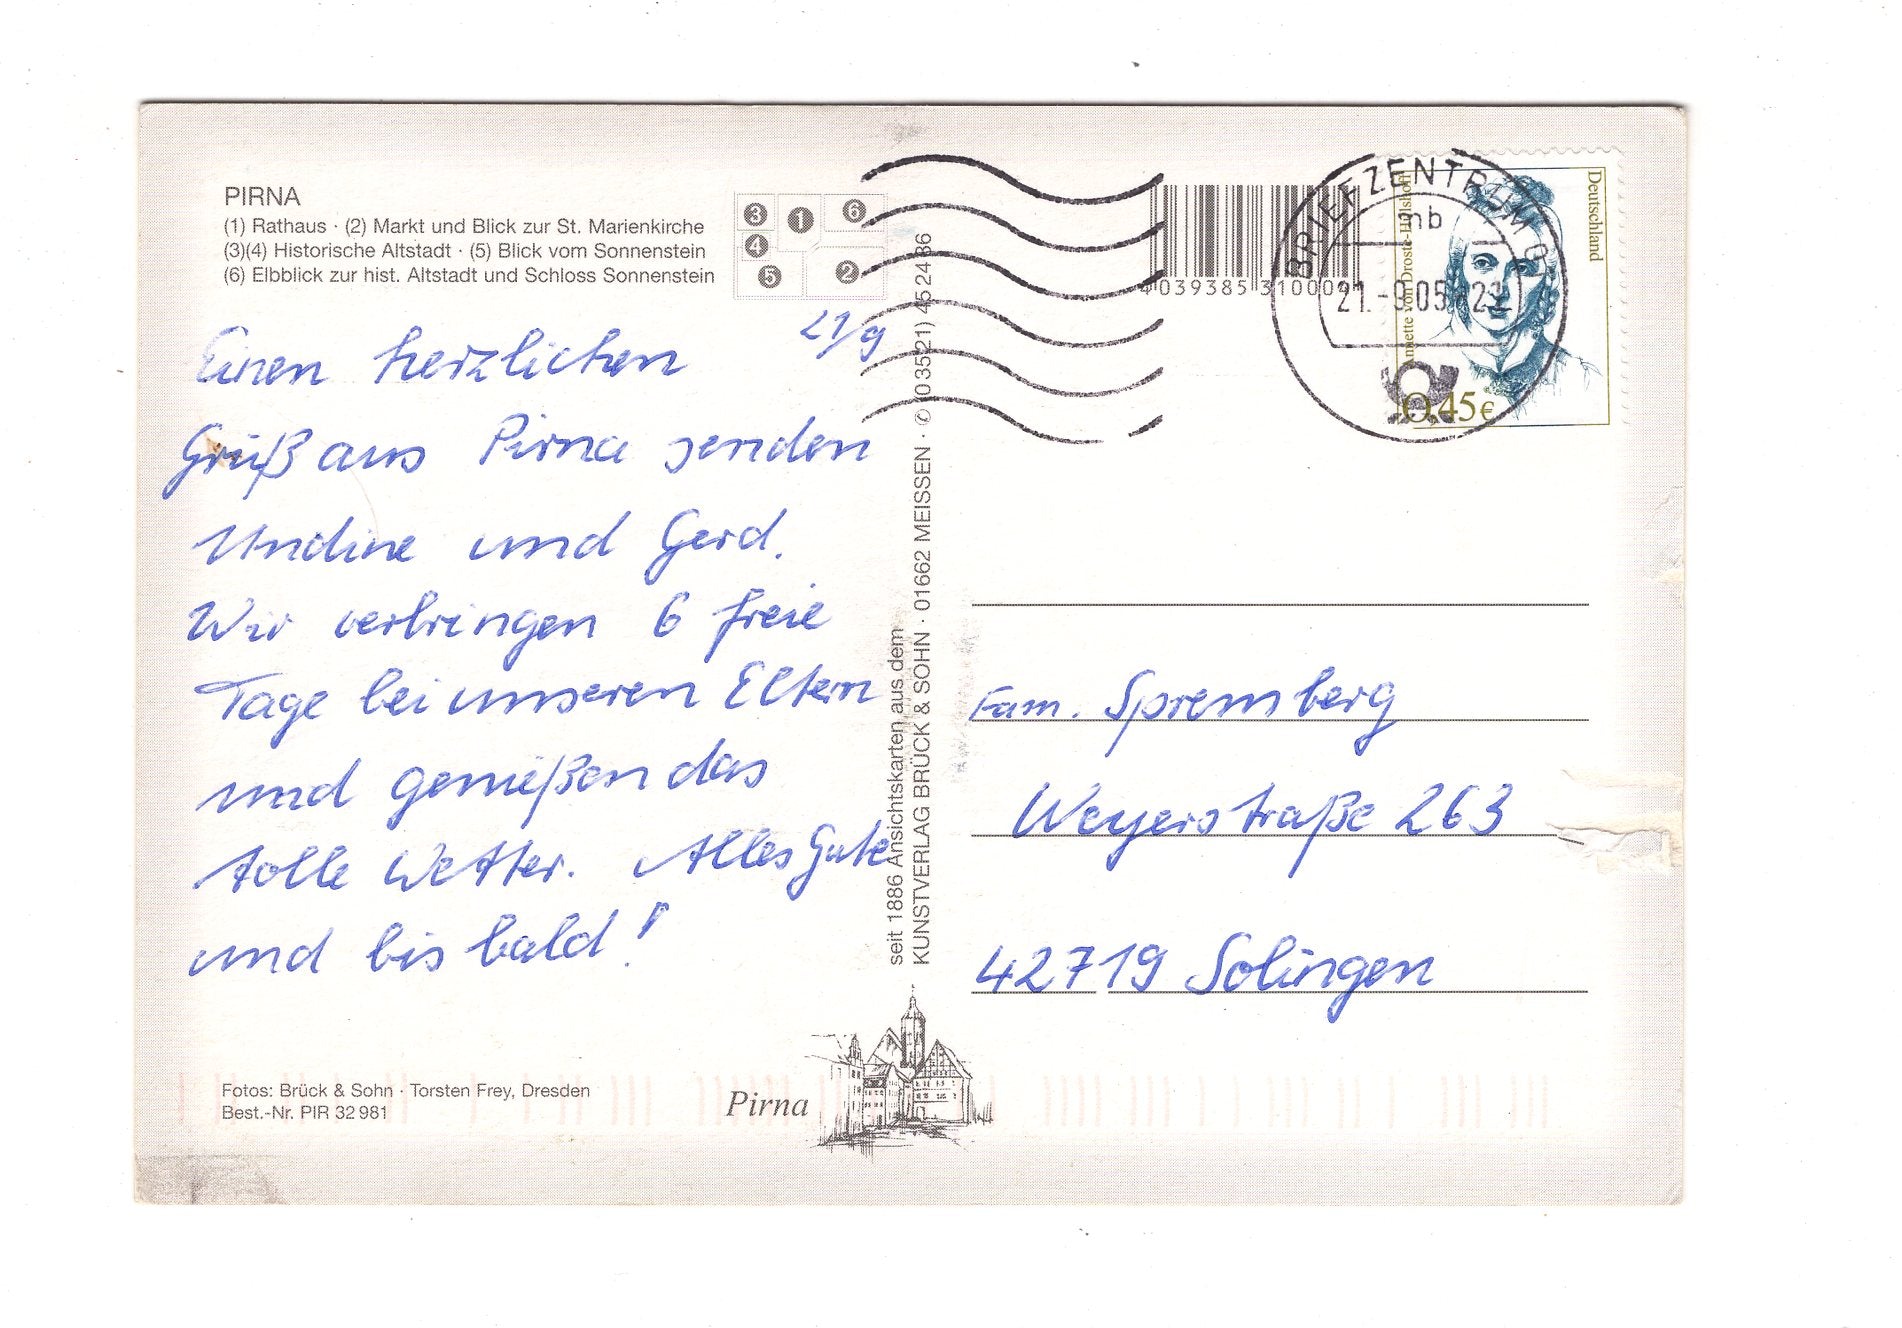 PIRNA
(1) Rathaus · (2) Markt und Blick zur St. Marienkirche
(3)(4) Historische Altstadt · (5) Blick vom Sonnenstein
(6) Elbblick zur hist. Altstadt und Schloss Sonnenstein
3 1 6
4
5 2
21/9
Einen herzlichen
Gruß aus Pirna senden
Undine und Gerd.
Wir verbringen 6 freie
Tage bei unseren Eltern
und genießen das
tolle Wetter. Alles Gute
und bis bald!
Fotos: Brück & Sohn · Torsten Frey, Dresden
Best.-Nr. PIR 32 981
Pirna
seit 1886 Ansichtskarten aus dem
KUNSTVERLAG BRÜCK & SOHN · 01662 MEISSEN · ✆ (03521) 452486
4 039385 31000
BRIEFZENTRUM 01
mb
21.-9.05-21
Deutschland
Annette von Droste-Hülshoff
0,45€
Fam. Spremberg
Weyerstraße 263
42719 Solingen